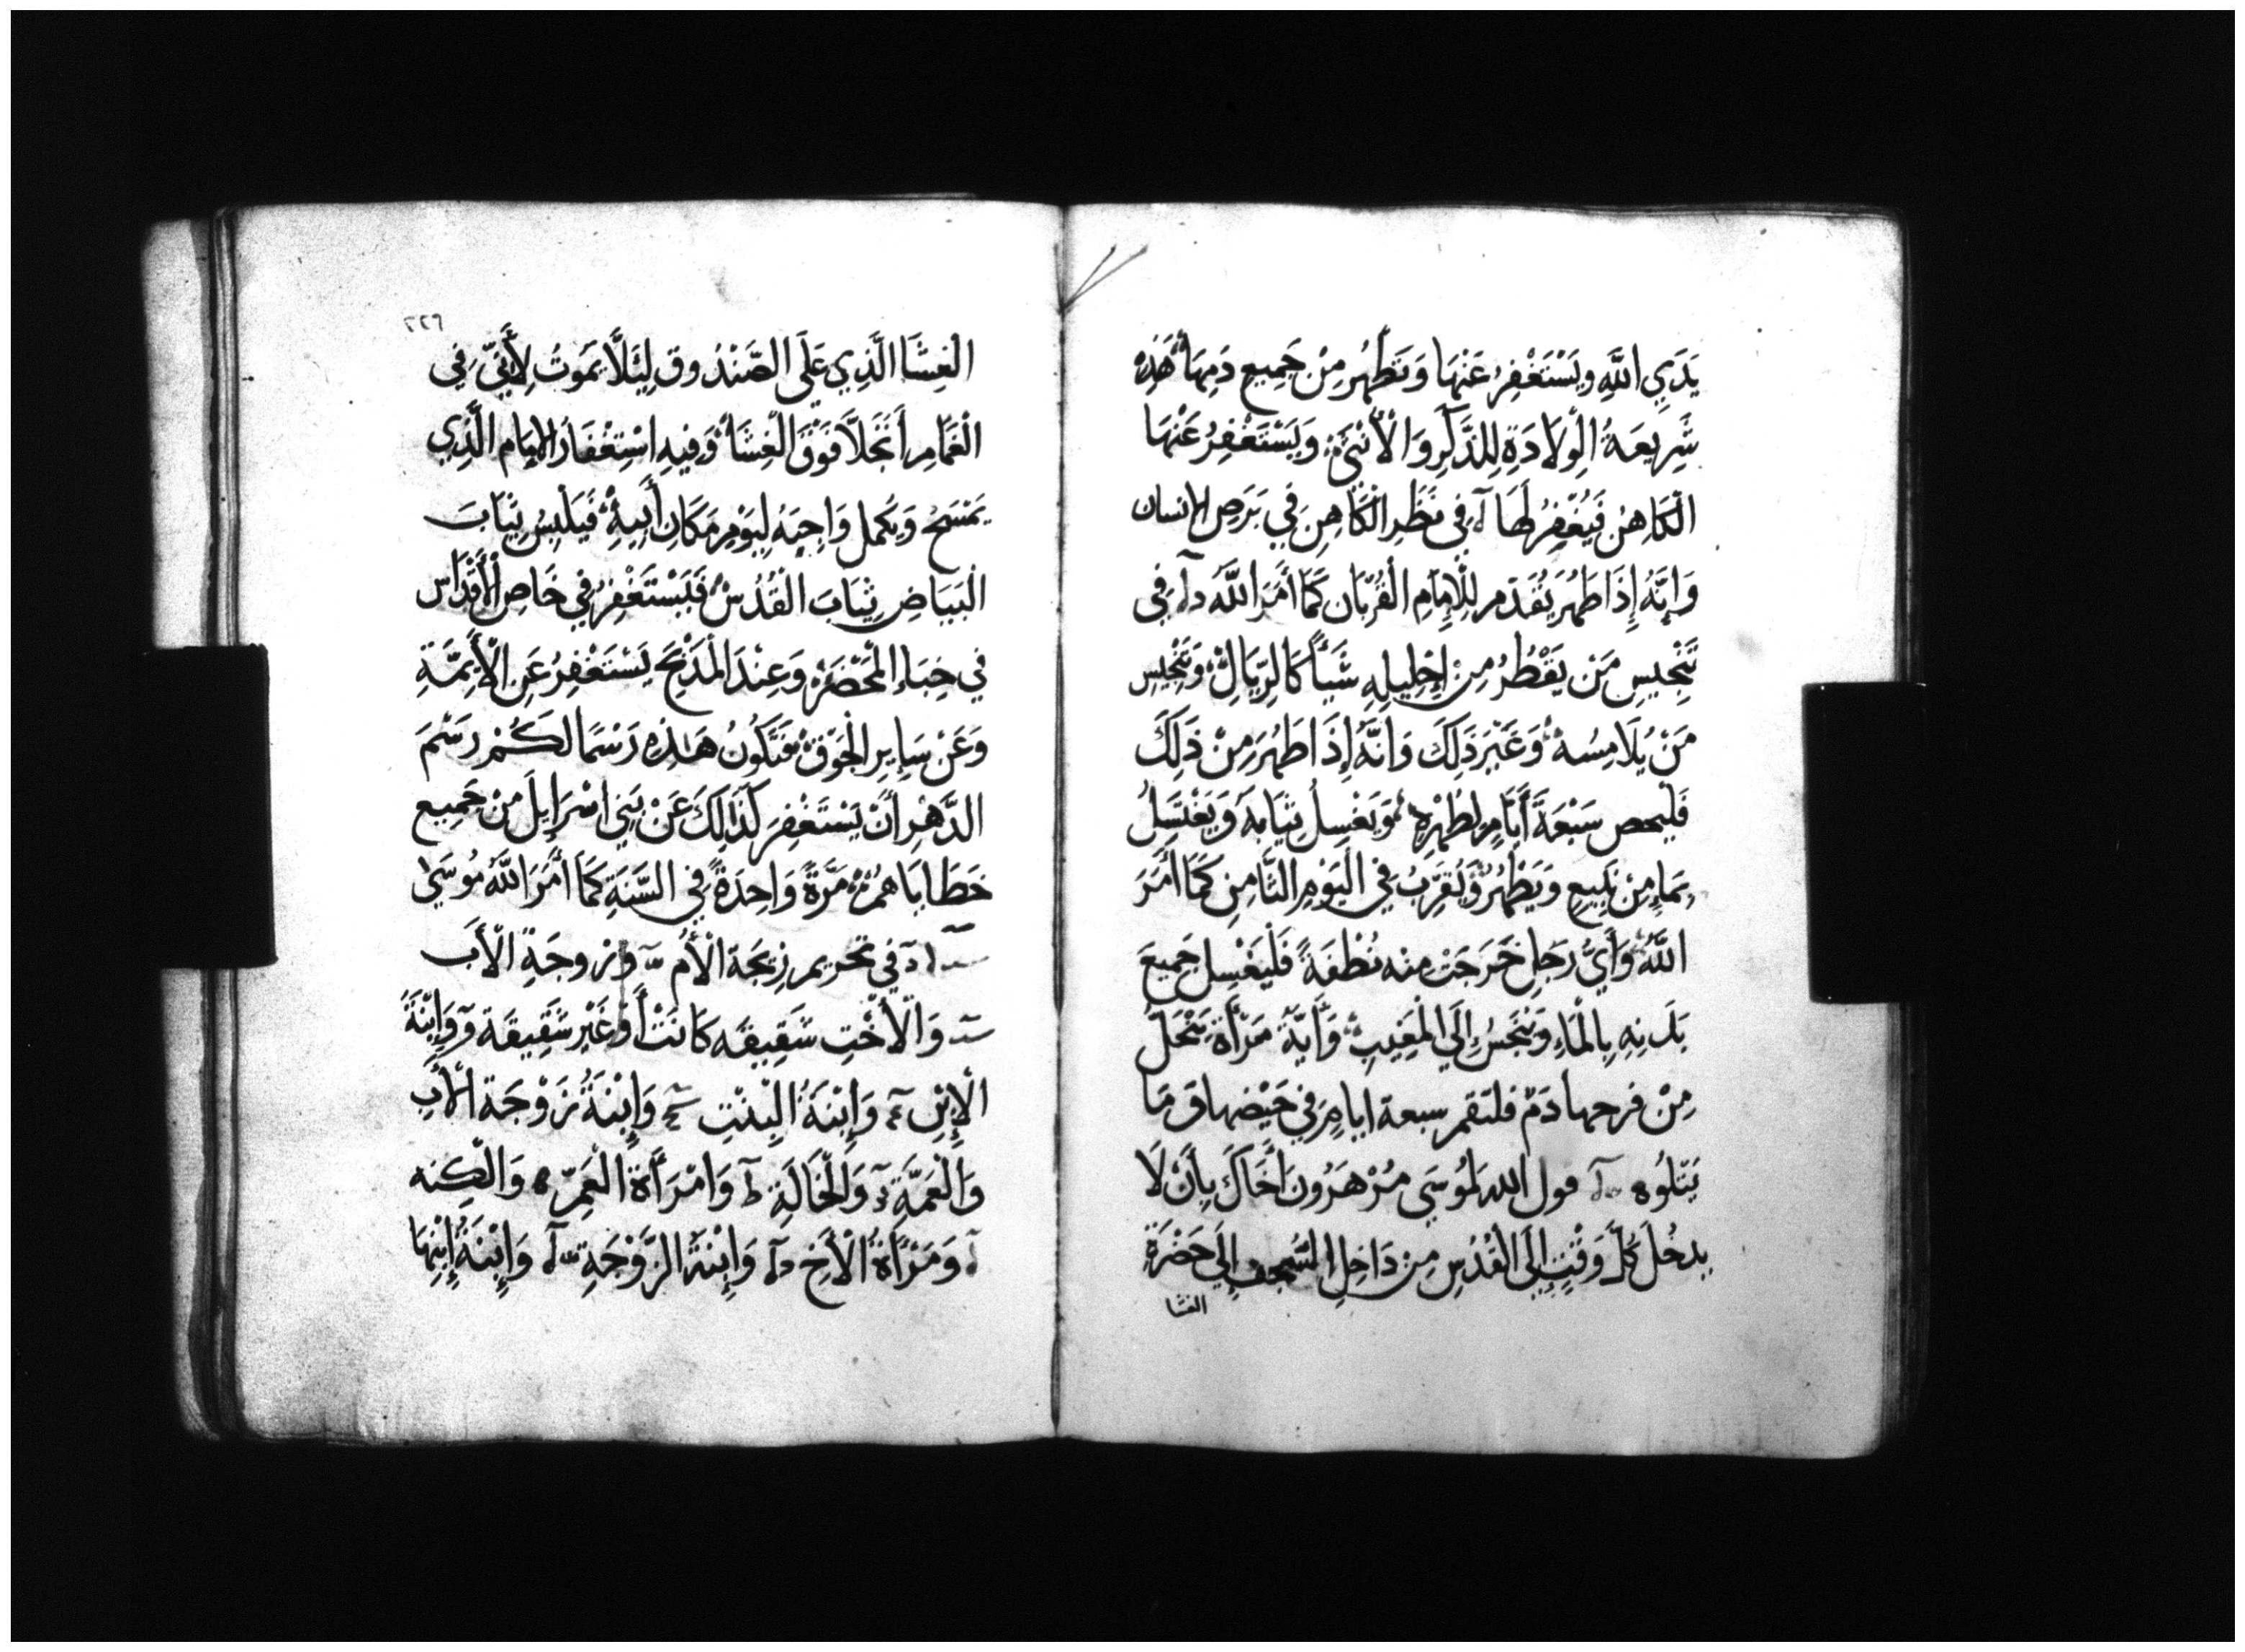 يَدَيِ اللَّهِ وَيَسْتَغْفِرُ عَنْهَا وَتَطْهُر مِنْ جَمِيعِ دَمِهَا هَذِهِ
شَرِيعَةُ الْوِلَادَةِ لِلذَّكَرِ وَالْأُنْثَى وَيَسْتَغْفِرُ عَنْهَا
الْكَاهِنُ فَيُغْفِرُ لَهَا فِي نَظَرِ الْكَاهِنِ فِي بَرَصِ الإنسان
وَإِنَّهُ إِذَا طَهُرَ يُقَدِّم لِلْإِمَامِ الْقُرْبَان كَمَا أَمَرَ اللَّهُ فِي
تَنْجِيسِ مَن يَقْطُرُ مِنْ إِحْلِيلِهِ شَيْأً كَالرِّيَالِ وَتَنْجِيسِ
مَنْ يُلَامِسُهُ وَغَيْرَ ذَلِكَ وَانَّهُ إِذَا طَهُرَ مِنْ ذَلِكَ
فَلْيحص سَبْعَةَ أَيَّامٍ لِطُهْرِهِ وَيَغْسِلُ ثِيَابَهُ وَيَغْتَسِلُ
بِمَاءٍ مِنْ نَبِيعٍ وَيَطْهُرُ وَيُقَرِّبُ فِي الْيَوْمِ الثَّامِنِ كَمَا أَمَرَ
اللَّهُ وَأَيُّ رَجُلٍ خَرَجَتْ مِنه نُطْفَةً فَلْيَغْسِل جَمِيعَ
بَدَنِهِ بِالْمَاءِ وَيَنْجَسُ إِلَى الْمَغِيبِ وَأَيَّةُ مَرْأَةٍ يَنْحَلُّ
مِنْ فرجها دَمٌ فلتقم سبعة ايامٍ فِي حَيْضِهَا وَمَا
يَتْلُوه قول الله لِمُوسَى مُرْ هَرُونَ أَخَاكَ بِأَنْ لَا
يدخُلَ كُلَّ وَقْتٍ إِلَى الْقُدْسِ مِنْ دَاخِلِ السِّجْفِ إِلَى حَضْرَةِ
الغشا
٢٢٩
الْغِشَا الَّذِي عَلَى الصَّنْدُوق لِئَلَّا يَمُوتُ لِأَنِّي فِي
الْغَمَامِ أَتَجَلَّا فَوْقَ الْغِشَا وَفِيهِ اسْتِغْفَارُ الإمام الَّذِي
يَمْسَحُ وَيكمل وَاجِبَهُ لِيَوْمِ مَكَانِ أَبِيهِ فَيَلْبِسُ ثِيَابَ
الْبَيَاضِ ثِيَابَ الْقُدْسِ فَيَسْتَغْفِرُ فِي خَاصِ الْأَقْدَاسِ
فِي خِبَاءِ الْمَحْضَرِ وَعِنْدَ الْمَذْبَحِ يَسْتَغْفِرُ عَنِ الْأَيِمَّةِ
وَعَنْ سَايِرِ الْجَوْقِ فَتَكُونُ هَذِهِ رَسْمًا لَكُمْ رَسْمَ
الدَّهْرِ أَنْ يَسْتَغْفِرَ كَذَلِكَ عَنْ بَنِي اسْرَايِلَ مِنْ جَمِيعِ
خَطَايَاهُمْ مَرَّةً وَاحِدَةً فِي السَّنَةِ كَمَا أَمَرَ اللَّهُ مُوسَى
في تحريم زِيجَة الْأُم وَزوجَةِ الْأَب
وَالْأُخْتِ شَقِيقَه كَانَتْ أَوْ غَيْر شَقِيقَة وَابْنَةُ
الْإِبْنِ وَابْنَةُ الْبِنْتِ وَابْنَةُ زَوْجَة الْأَبِ
وَالْعَمَّةِ وَالْخَالَةِ وَامْرَأَة الْعَمِّ وَالْكِنه
وَمَرْأَةُ الْأَخِ وَابْنَةُ الزَّوْجَةِ وَابْنَةُ إِبْنِهَا